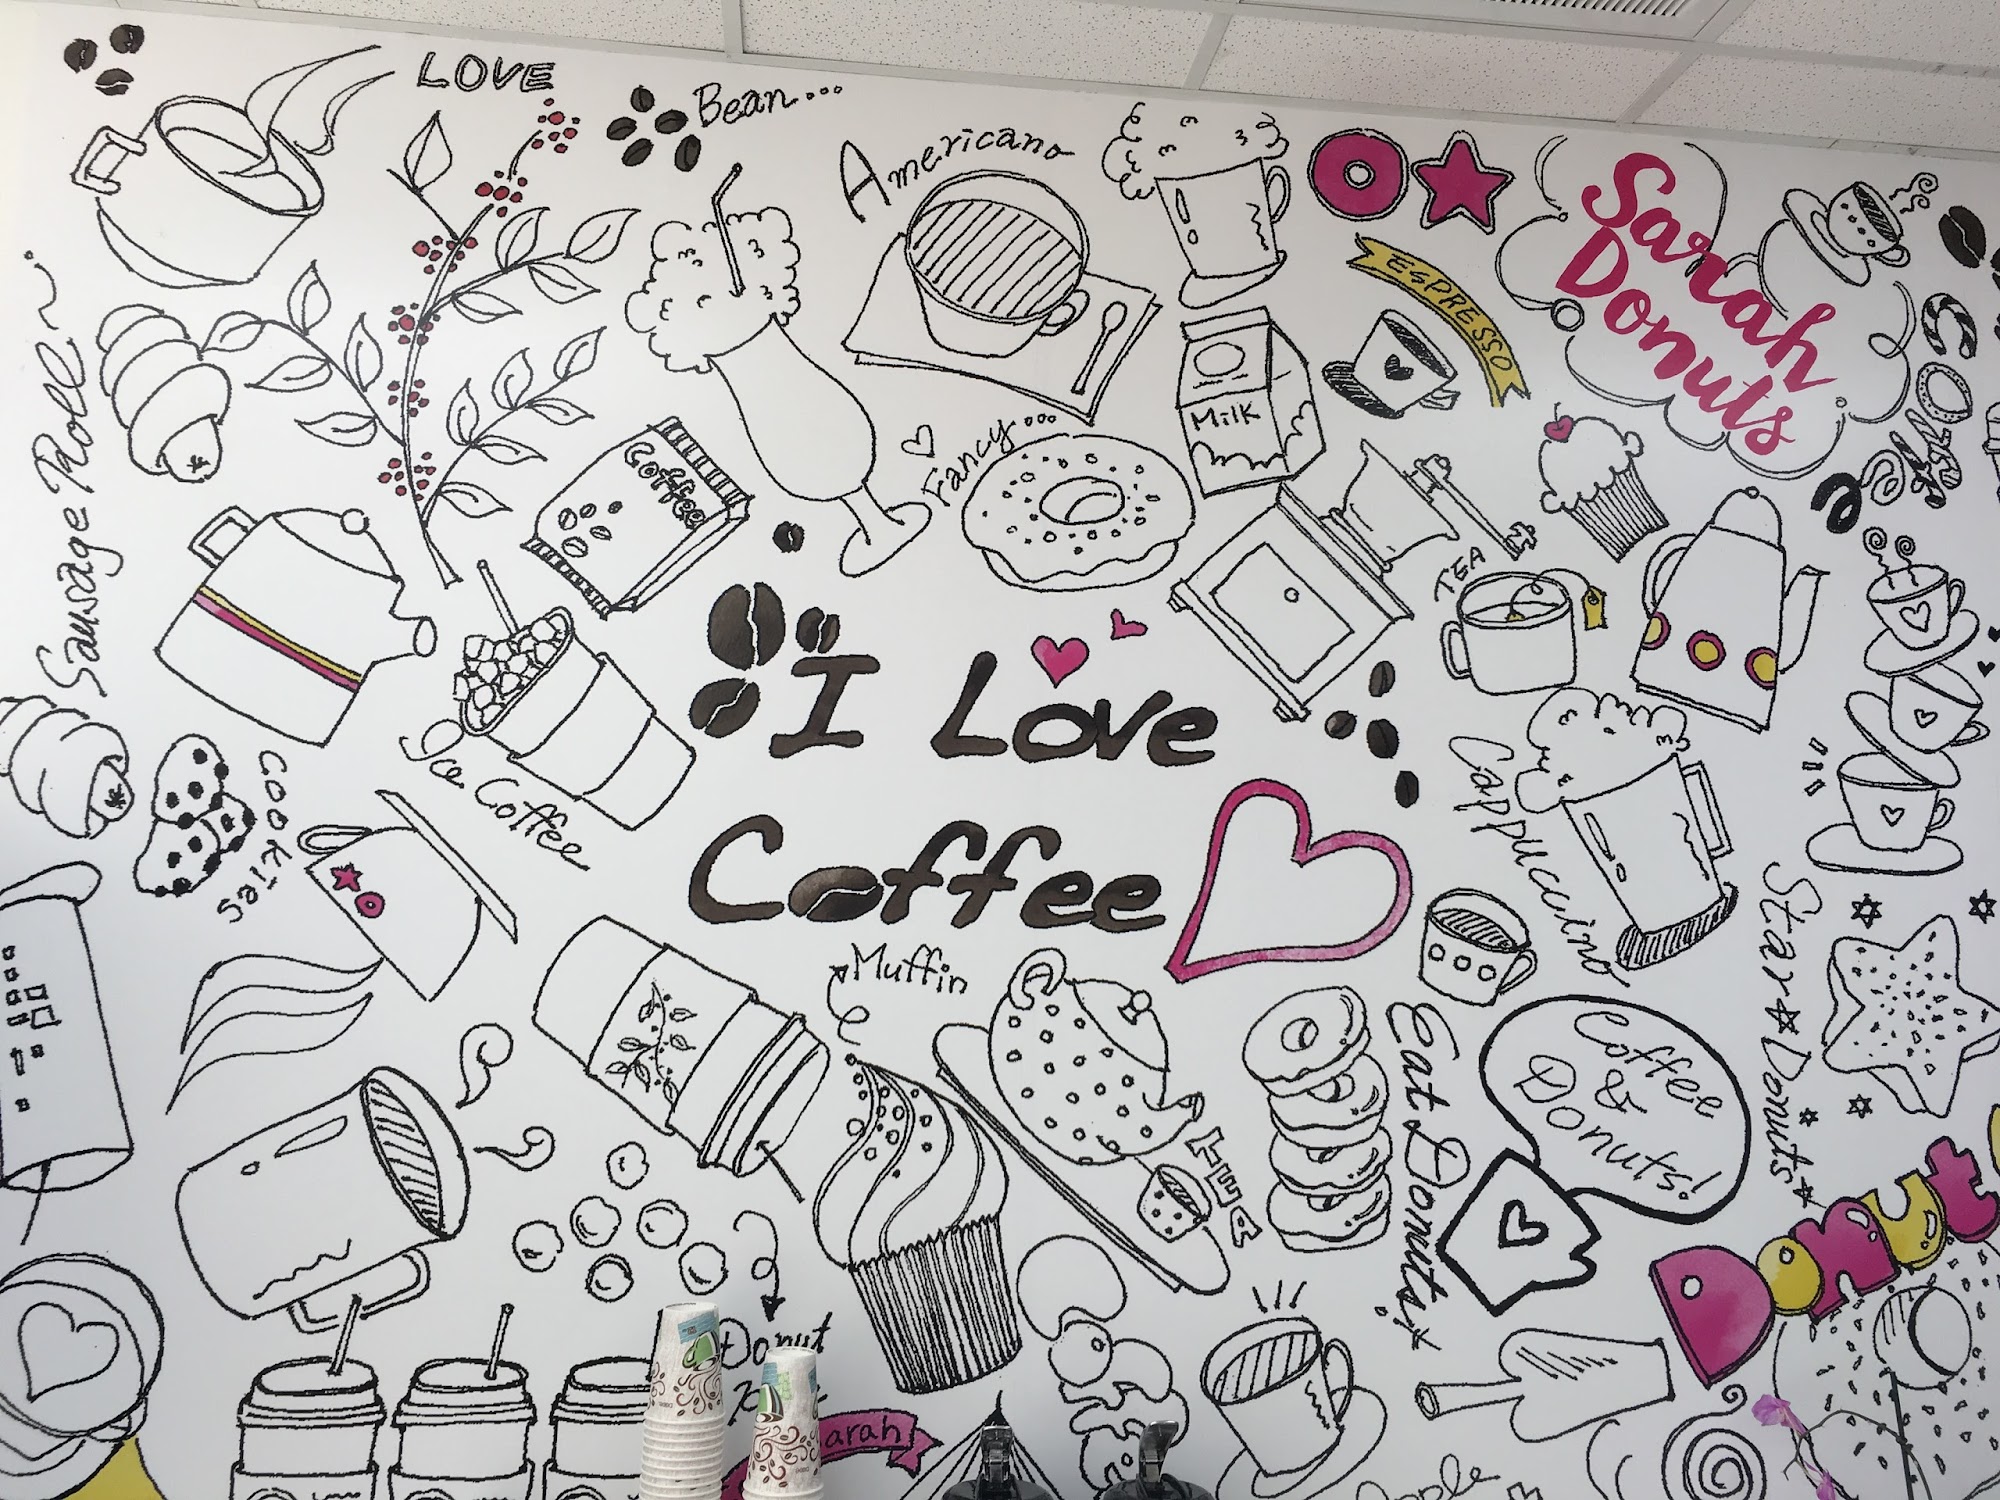 LOVE
Bean...
Americano
Sarah
Donuts
ESPRESSO
Milk
Fancy...
Coffee
Sausage Roll
TEA
I Love
Coffee
Ice Coffee
COOKIES
Cappuccino
Muffin
Star Donuts
TEA
Eat Donuts!
Coffee
&
Donuts!
Donut
Donut
arah